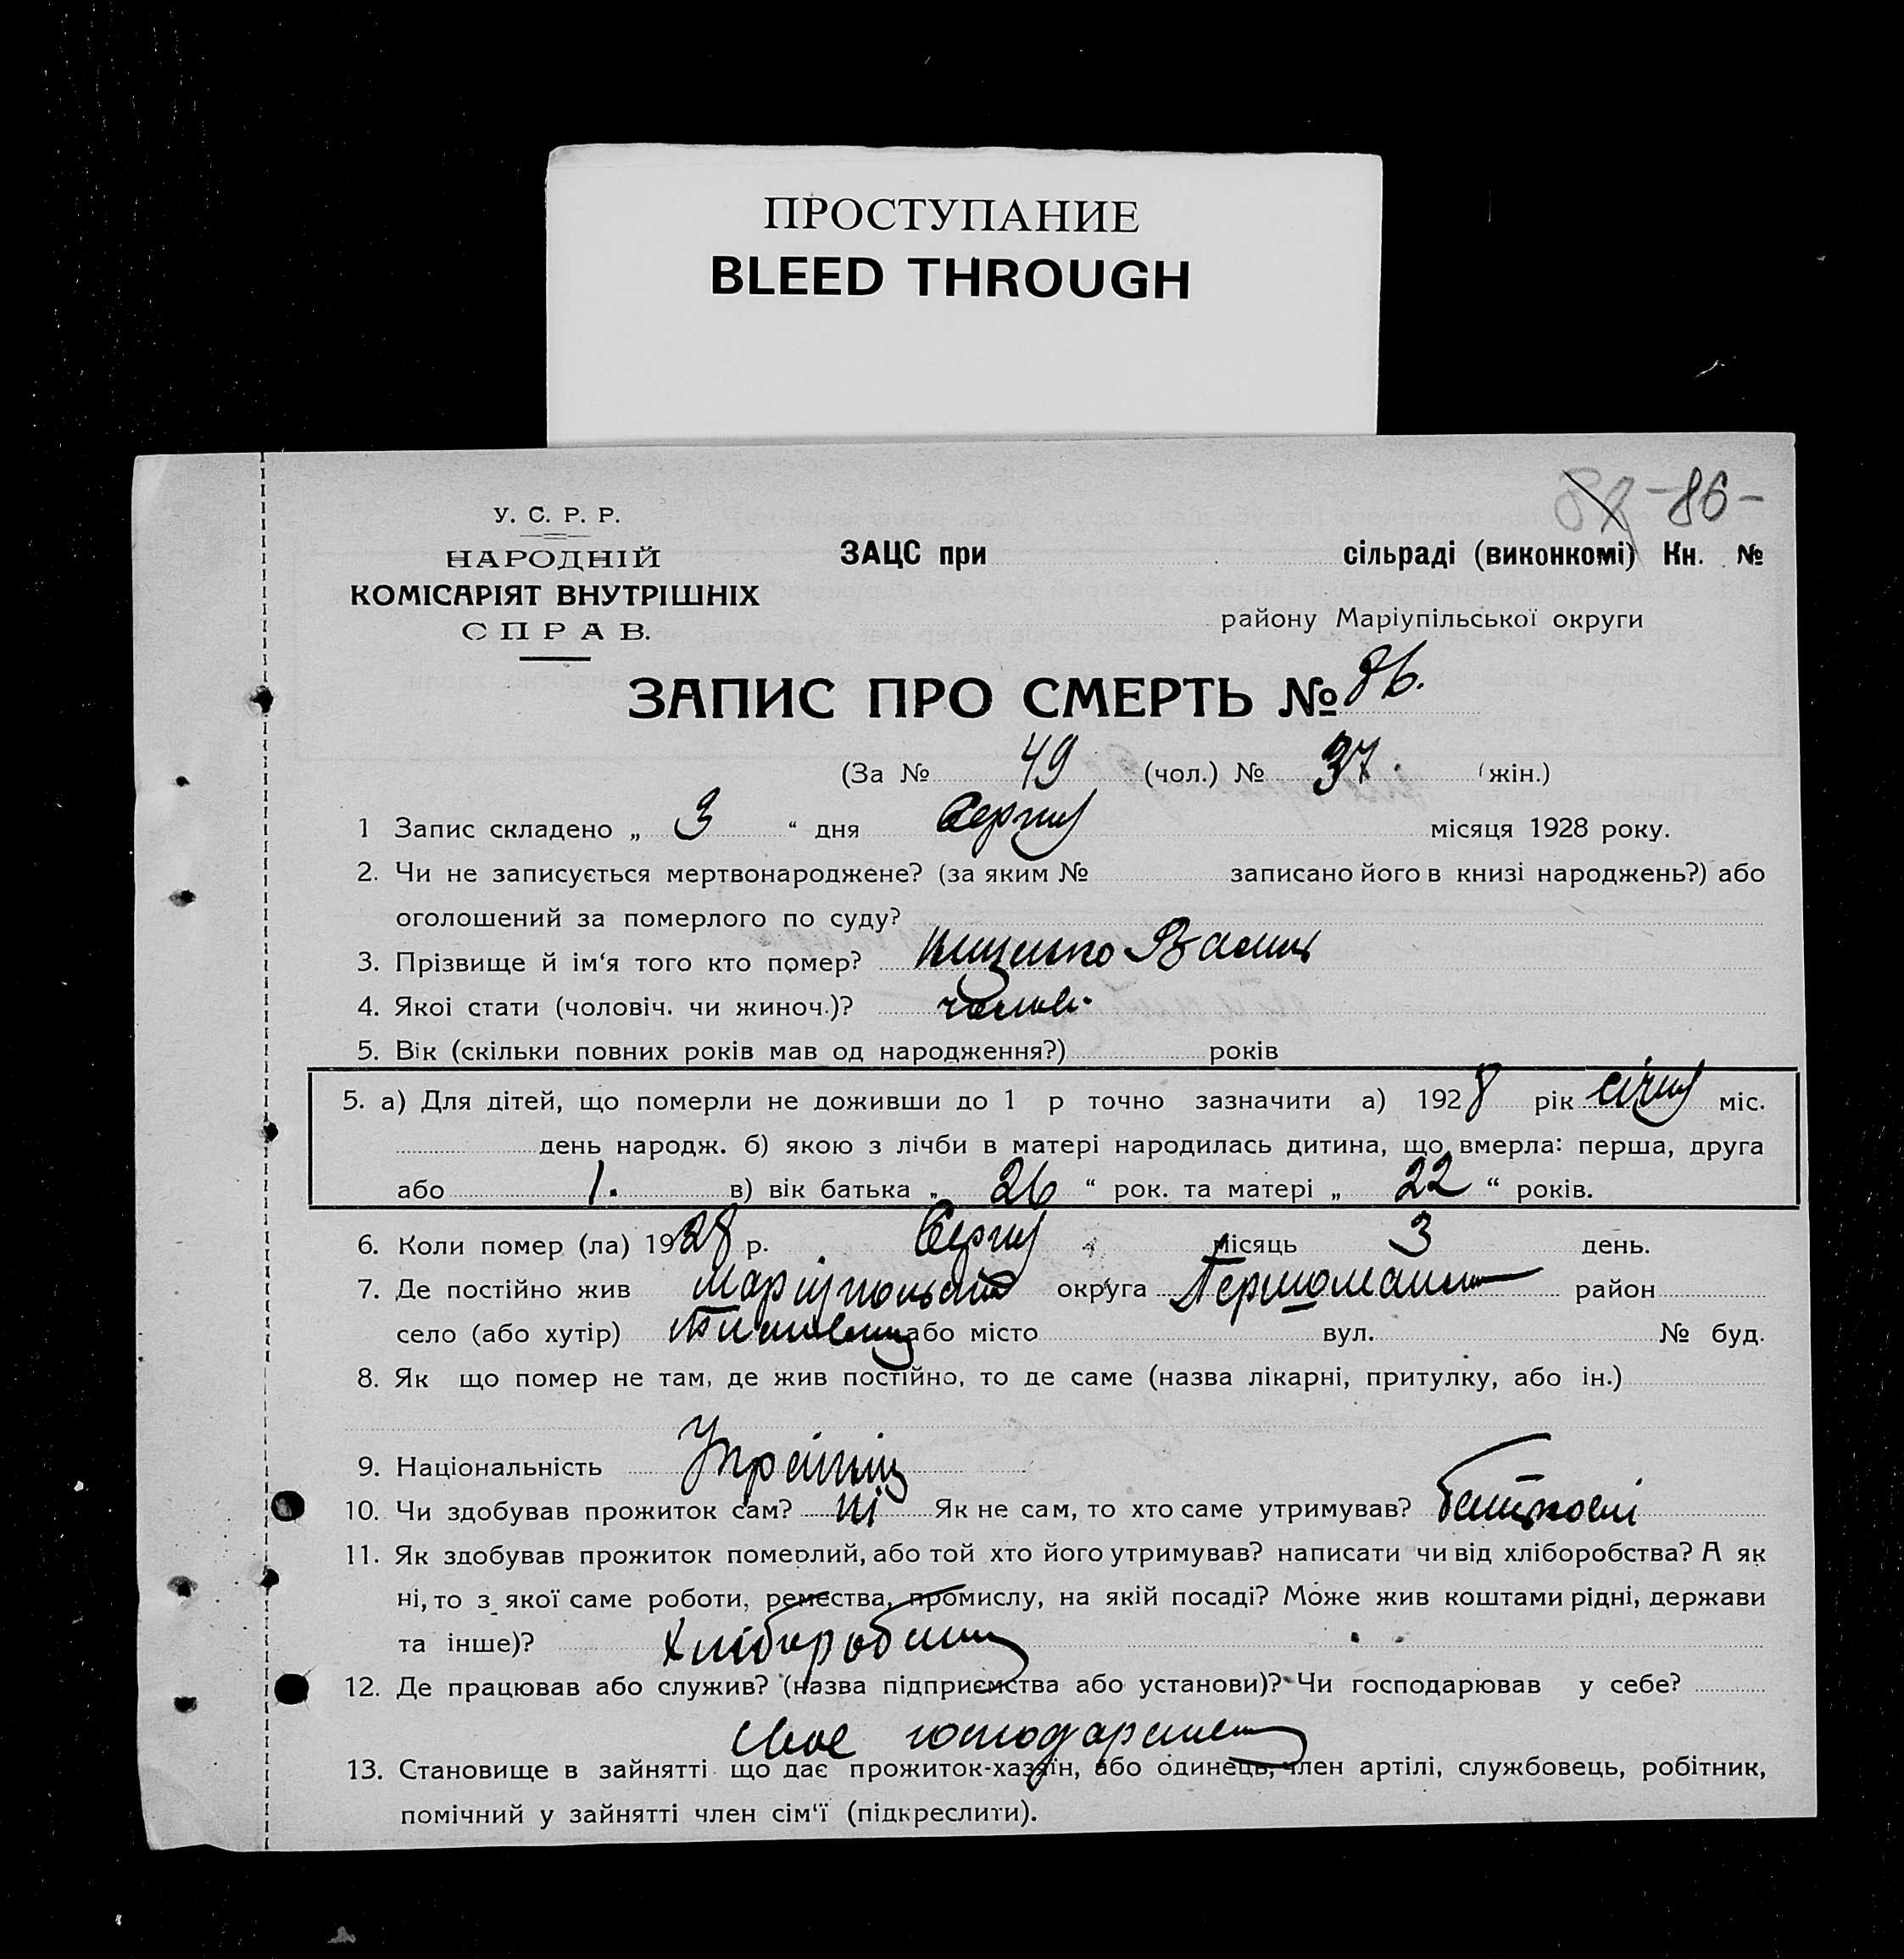 ПРОСТУПАНИЕ
BLEED THROUGH
- 86 -
У. С. Р. Р.
НАРОДНІЙ
КОМІСАРІЯТ ВНУТРІШНІХ
СПРАВ.
ЗАЦС при сільраді (виконкомі) Кн. №
району Маріупільської округи
ЗАПИС ПРО СМЕРТЬ № 86.
(За № 49 (чол.) № 37. (жін.)
1 Запис складено „ 3 “ дня Серпня місяця 1928 року.
2. Чи не записується мертвонароджене? (за яким № записано його в книзі народжень?) або
оголошений за померлого по суду?
3. Прізвище й ім‘я того кто помер?
4. Якоі стати (чоловіч. чи жиноч.)? чолов.
5. Вік (скільки повних років мав од народження?) років
5. а) Для дітей, що померли не доживши до 1 р точно зазначити а) 1928 рік січня міс.
день народж. б) якою з лічби в матері народилась дитина, що вмерла: перша, друга
або 1. в) вік батька „ 26 “ рок. та матері „ 22 “ років.
6. Коли помер (ла) 1928 р. Серпня місяць 3 день.
7. Де постійно жив округа район
село (або хутір) або місто вул. № буд.
8. Як що помер не там, де жив постійно, то де саме (назва лікарні, притулку, або ін.)
9. Національність
10. Чи здобував прожиток сам? ні Як не сам, то хто саме утримував?
11. Як здобував прожиток померлий, або той хто його утримував? написати чи від хліборобства? А як
ні, то з якої саме роботи, ремества, промислу, на якій посаді? Може жив коштами рідні, держави
та інше)?
12. Де працював або служив? (назва підприємства або установи)? Чи господарював у себе?
своє
13. Становище в зайнятті що дає прожиток-хазяїн, або одинець, член артілі, службовець, робітник,
помічний у зайнятті член сім‘ї (підкреслити).